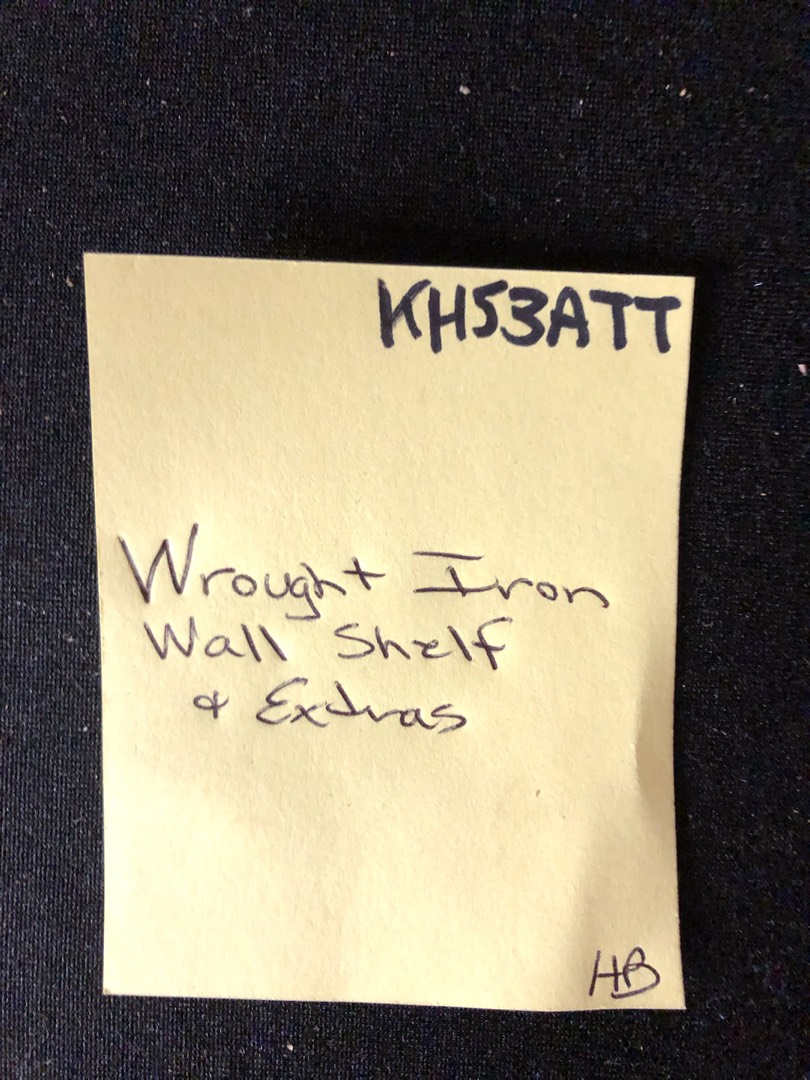 KH53ATT
Wrought Iron
Wall Shelf
& Extras
HB